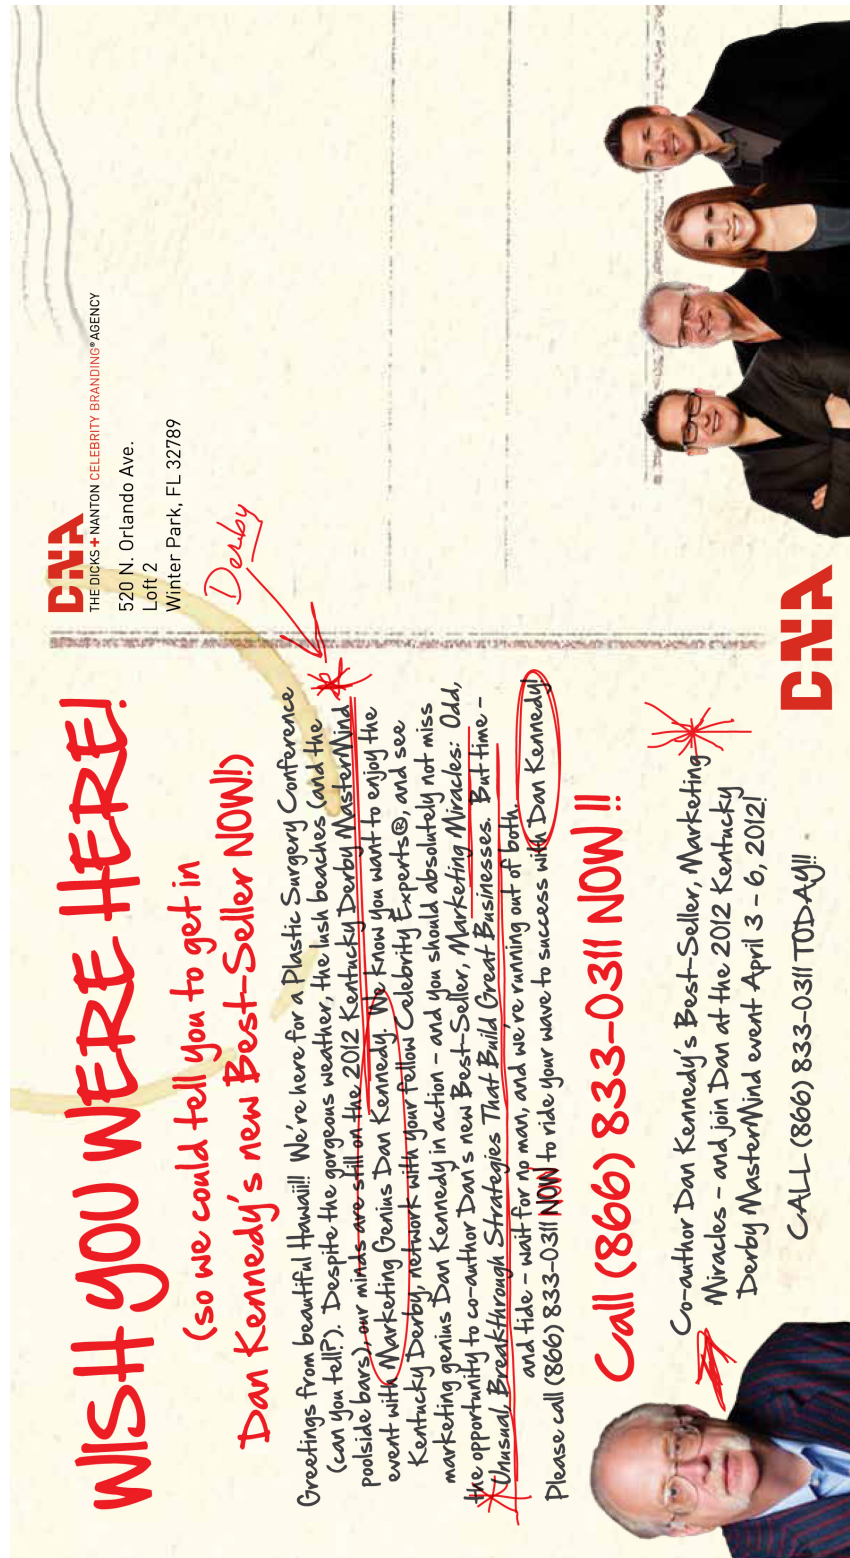 WISH YOU WERE HERE!
(so we could tell you to get in
Dan Kennedy's new Best-Seller NOW!)
Greetings from beautiful Hawaii!! We're here for a Plastic Surgery Conference
(can you tell?). Despite the gorgeous weather, the lush beaches (and the
poolside bars), our minds are still on the 2012 Kentucky Derby MasterMind
event with Marketing Genius Dan Kennedy. We know you want to enjoy the
Kentucky Derby, network with your fellow Celebrity Experts®, and see
marketing genius Dan Kennedy in action - and you should absolutely not miss
the opportunity to co-author Dan's new Best-Seller, Marketing Miracles: Odd,
Unusual, Breakthrough Strategies That Build Great Businesses. But time -
and tide - wait for no man, and we're running out of both.
Please call (866) 833-0311 NOW to ride your wave to success with Dan Kennedy!
Call (866) 833-0311 NOW!!
Co-author Dan Kennedy's Best-Seller, Marketing
Miracles - and join Dan at the 2012 Kentucky
Derby MasterMind event April 3 - 6, 2012!
CALL (866) 833-0311 TODAY!!
DNA
DNA
THE DICKS + NANTON CELEBRITY BRANDING® AGENCY
520 N. Orlando Ave.
Loft 2
Winter Park, FL 32789
Derby